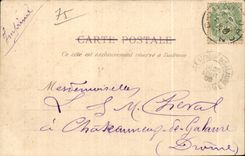 Imprimé
CARTE POSTALE
Ce côté est exclusivement réservé à l'adresse
Mesdemoiselles
L & M Cheval
à Châteauneuf-de-Galaure
Drôme